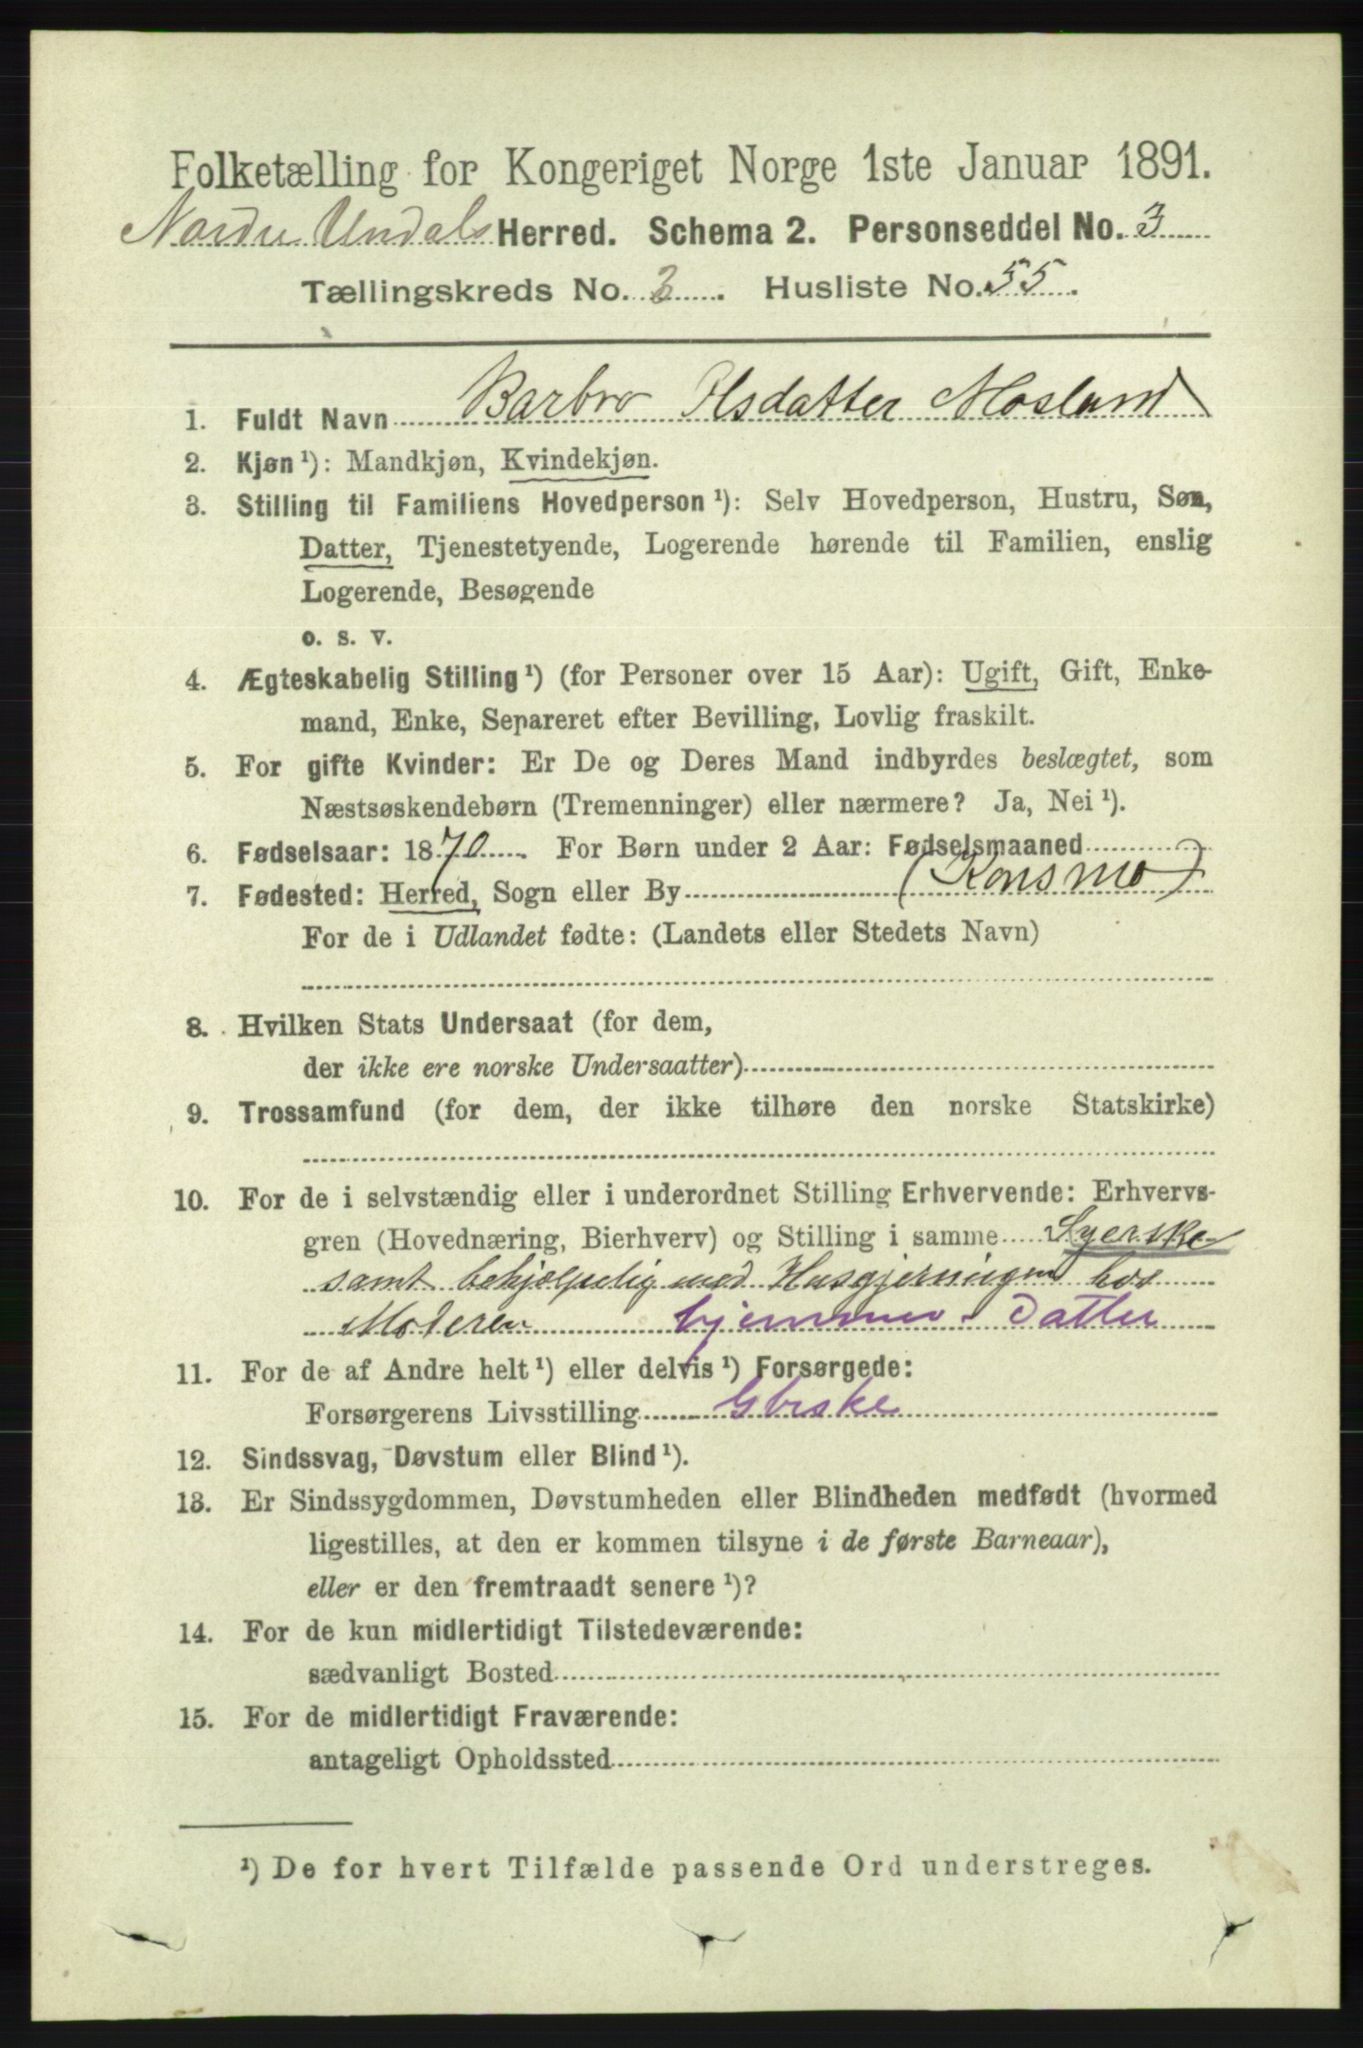 Folketælling for Kongeriget Norge 1ste Januar 1891.
Nordre Undals Herred. Schema 2. Personseddel No. 3
Tællingskreds No. 3. Husliste No. 55.
1. Fuldt Navn Barbro Olsdatter Mosland
2. Kjøn ¹): Mandkjøn, Kvindekjøn.
3. Stilling til Familiens Hovedperson ¹): Selv Hovedperson, Hustru, Søn,
Datter, Tjenestetyende, Logerende hørende til Familien, enslig
Logerende, Besøgende
o. s. v.
4. Ægteskabelig Stilling ¹) (for Personer over 15 Aar): Ugift, Gift, Enke-
mand, Enke, Separeret efter Bevilling, Lovlig fraskilt.
5. For gifte Kvinder: Er De og Deres Mand indbyrdes beslægtet, som
Næstsøskendebørn (Tremenninger) eller nærmere? Ja, Nei ¹).
6. Fødselsaar: 1870. For Børn under 2 Aar: Fødselsmaaned
7. Fødested: Herred, Sogn eller By (Konsmo)
For de i Udlandet fødte: (Landets eller Stedets Navn)
8. Hvilken Stats Undersaat (for dem,
der ikke ere norske Undersaatter)
9. Trossamfund (for dem, der ikke tilhøre den norske Statskirke)
10. For de i selvstændig eller i underordnet Stilling Erhvervende: Erhvervs-
gren (Hovednæring, Bierhverv) og Stilling i samme Syerske
samt behjælpelig med Husgjerningen hos
Moderen hjemmev. Datter
11. For de af Andre helt ¹) eller delvis ¹) Forsørgede:
Forsørgerens Livsstilling Gbrske
12. Sindssvag, Døvstum eller Blind ¹).
13. Er Sindssygdommen, Døvstumheden eller Blindheden medfødt (hvormed
ligestilles, at den er kommen tilsyne i de første Barneaar),
eller er den fremtraadt senere ¹)?
14. For de kun midlertidigt Tilstedeværende:
sædvanligt Bosted
15. For de midlertidigt Fraværende:
antageligt Opholdssted
¹) De for hvert Tilfælde passende Ord understreges.